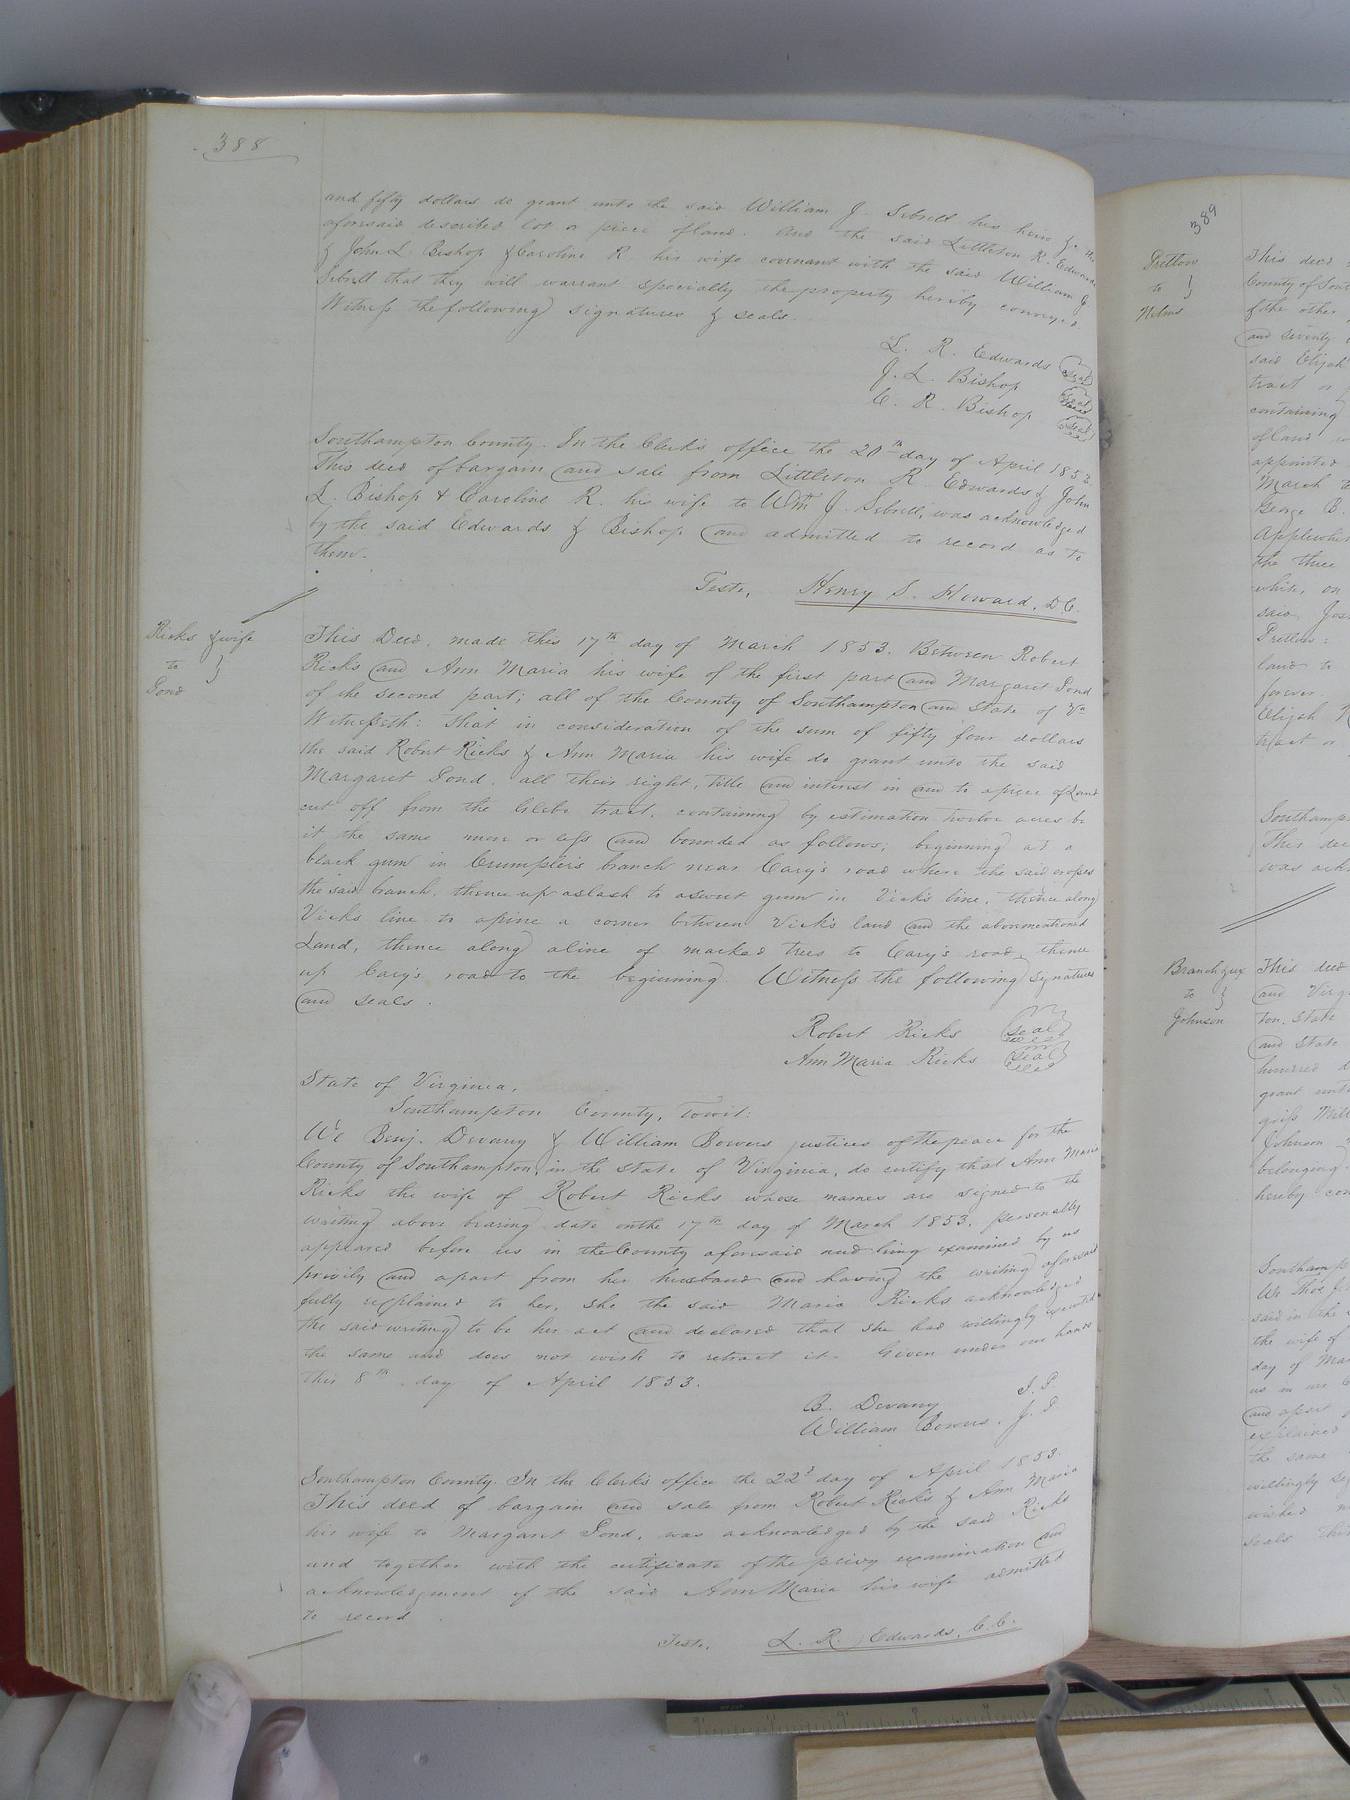 388
and fifty dollars do grant unto the said William J. Sebrell his heirs &c the
aforesaid described lot or piece of land. And the said Littleton R. Edwards
& John L. Bishop & Caroline R. his wife covenant with the said William J.
Sebrell that they will warrant specially the property hereby conveyed.
Witness the following signatures & seals.
L. R. Edwards seal
J. L. Bishop seal
C. R. Bishop seal
Southampton County. In the Clerk's office the day of April 1853
This deed of bargain and sale from Littleton R. Edwards & John
L. Bishop & Caroline R. his wife to Wm J. Sebrell, was acknowledged
by the said Edwards & Bishop and admitted to record as to
them.
Teste, Henry S. Howard, D.C.
Ricks & wife
to }
Pond
This Deed, made this 17th day of March 1853. Between Robert
Ricks and Ann Maria his wife of the first part and Margaret Pond
of the second part; all of the County of Southampton and State of Va
Witnesseth: that in consideration of the sum of fifty four dollars
the said Robert Ricks & Ann Maria his wife do grant unto the said
Margaret Pond, all their right, title and interest in and to a piece of Land
cut off from the Glebe tract, containing by estimation twelve acres be
it the same more or less and bounded as follows; beginning at a
black gum in Crumpler's branch near Cary's road where the said crosses
the said branch, thence up a slash to a sweet gum in Vick's line, thence along
Vicks line to a pine a corner between Vick's land and the abovementioned
Land, thence along a line of marked trees to Cary's road, thence
up Cary's road to the beginning. Witness the following signatures
and seals.
Robert Ricks seal
Ann Maria Ricks seal
State of Virginia,
Southampton County, Towit:
We Benj. Devany & William Bowers justices of the peace for the
County of Southampton, in the state of Virginia, do certify that Ann Maria
Ricks the wife of Robert Ricks whose names are signed to the
writing above bearing date on the 17th day of March 1853, personally
appeared before us in the County aforesaid and being examined by us
privily and apart from her husband and having the writing aforesaid
fully explained to her, she the said Maria Ricks acknowledged
the said writing to be her act and declared that she had willingly executed
the same and does not wish to retract it. Given under our hands
this 8th day of April 1853.
B. Devany J.P.
William Bowers. J.P.
Southampton County. In the Clerk's office the 22d day of April 1853.
This deed of bargain and sale from Robert Ricks & Ann Maria
his wife to Margaret Pond, was acknowledged by the said Ricks
and together with the certificate of the privy examination and
acknowledgment of the said Ann Maria his wife admitted
to record.
Teste, L. R. Edwards, C.C.
389
Pretlow
to }
Nelms
This deed
County of Sout
of the other
and seventy
said Elijah
tract or
containing
of land
appointed
March
George B.
Applewhi
the three
white, on
said Jos
Pretlow:
land to
forever
Elijah
tract or
Southamp
This dee
was ackn
Branch & ux
to }
Johnson
This deed
and Virg
ton, State
and State
hundred
grant unto
grist Mill
Johnson
belonging
hereby con
Southamp
We Thos
said in the
the wife of
day of Mar
us in our
and apart
explained
the same
willingly
wished
seals this